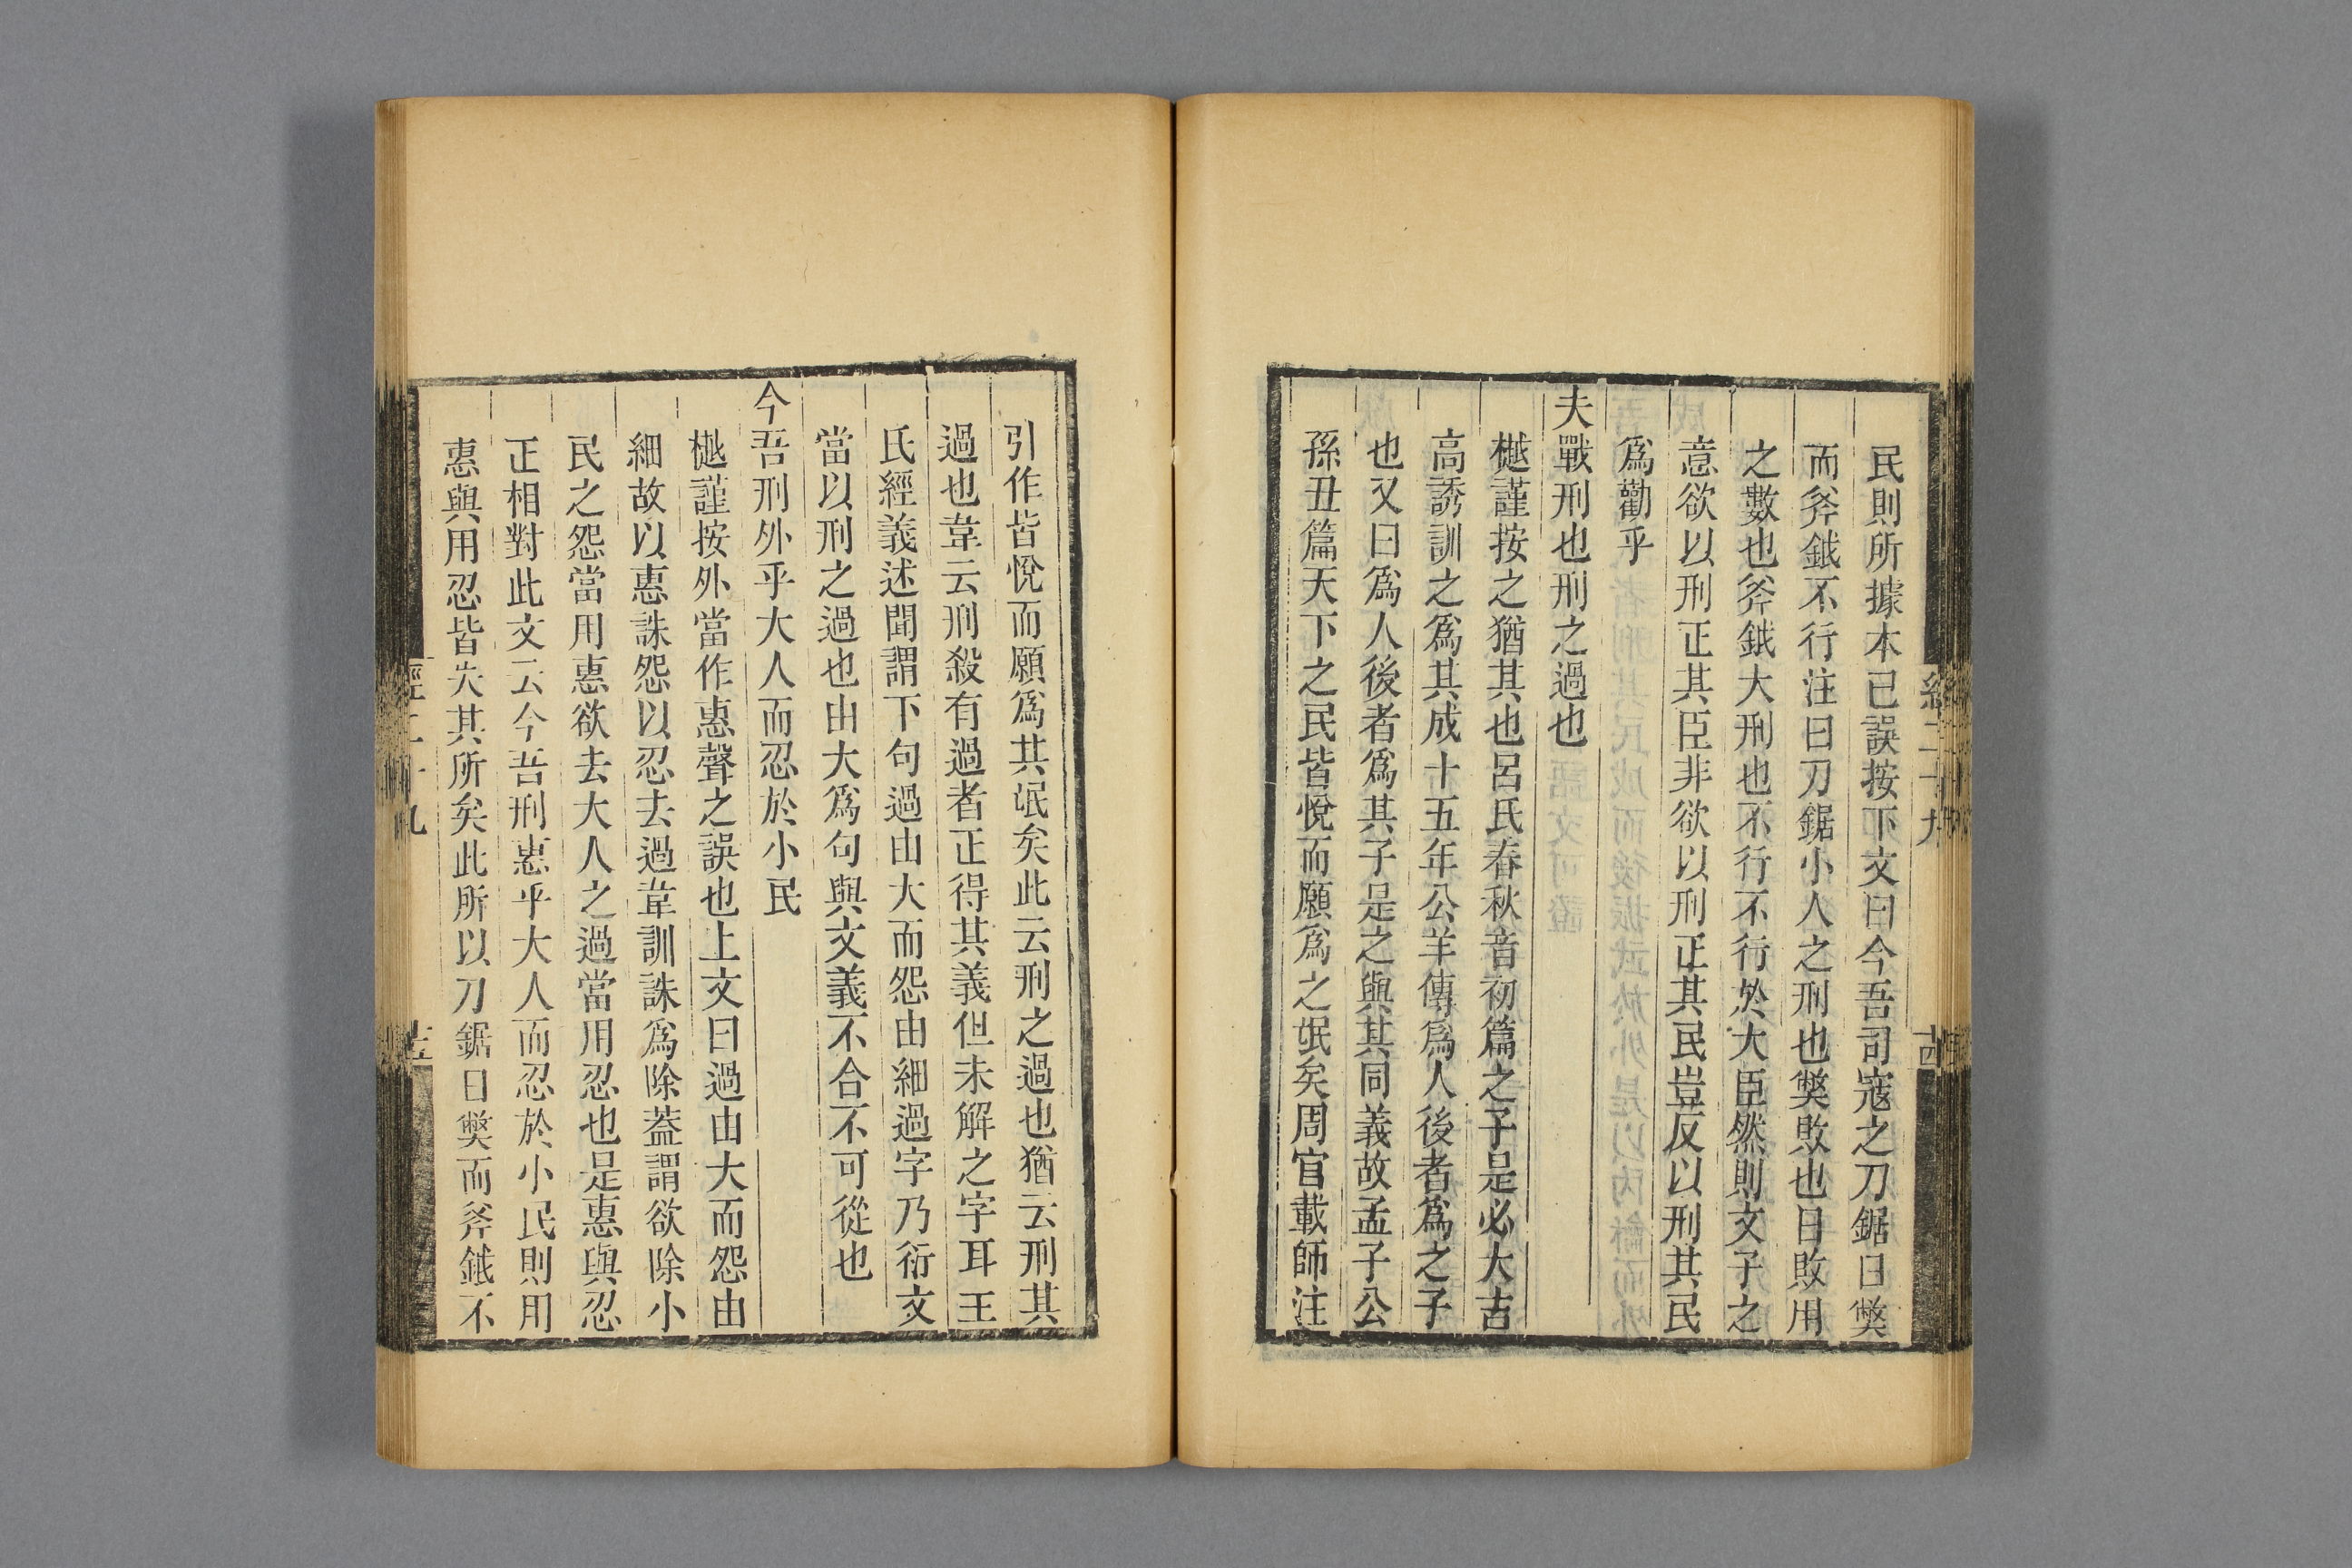 民則所據本已誤按下文曰今吾司寇之刀鋸日獘
而斧鉞不行注曰刀鋸小人之刑也獘敗也日敗用
之數也斧鉞大刑也不行不行於大臣然則文子之
意欲以刑正其臣非欲以刑正其民豈反以刑其民
爲勸乎
夫戰刑也刑之過也
樾謹按之猶其也呂氏春秋音初篇之子是必大吉
高誘訓之爲其成十五年公羊傳爲人後者爲之子
也又曰爲人後者爲其子是之與其同義故孟子公
孫丑篇天下之民皆悅而願爲之氓矣周官載師注
引作皆悅而願爲其氓矣此云刑之過也猶云刑其
過也韋云刑殺有過者正得其義但未解之字耳王
氏經義述聞謂下句過由大而怨由細過字乃衍文
當以刑之過也由大爲句與文義不合不可從也
今吾刑外乎大人而忍於小民
樾謹按外當作惠聲之誤也上文曰過由大而怨由
細故以惠誅怨以忍去過韋訓誅爲除蓋謂欲除小
民之怨當用惠欲去大人之過當用忍也是惠與忍
正相對此文云今吾刑惠乎大人而忍於小民則用
惠與用忍皆失其所矣此所以刀鋸日獘而斧鉞不